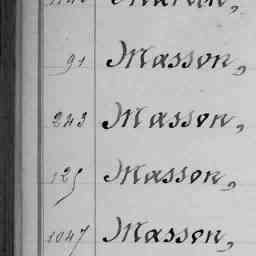 91 Masson,
243 Masson,
125 Masson,
1047 Masson,